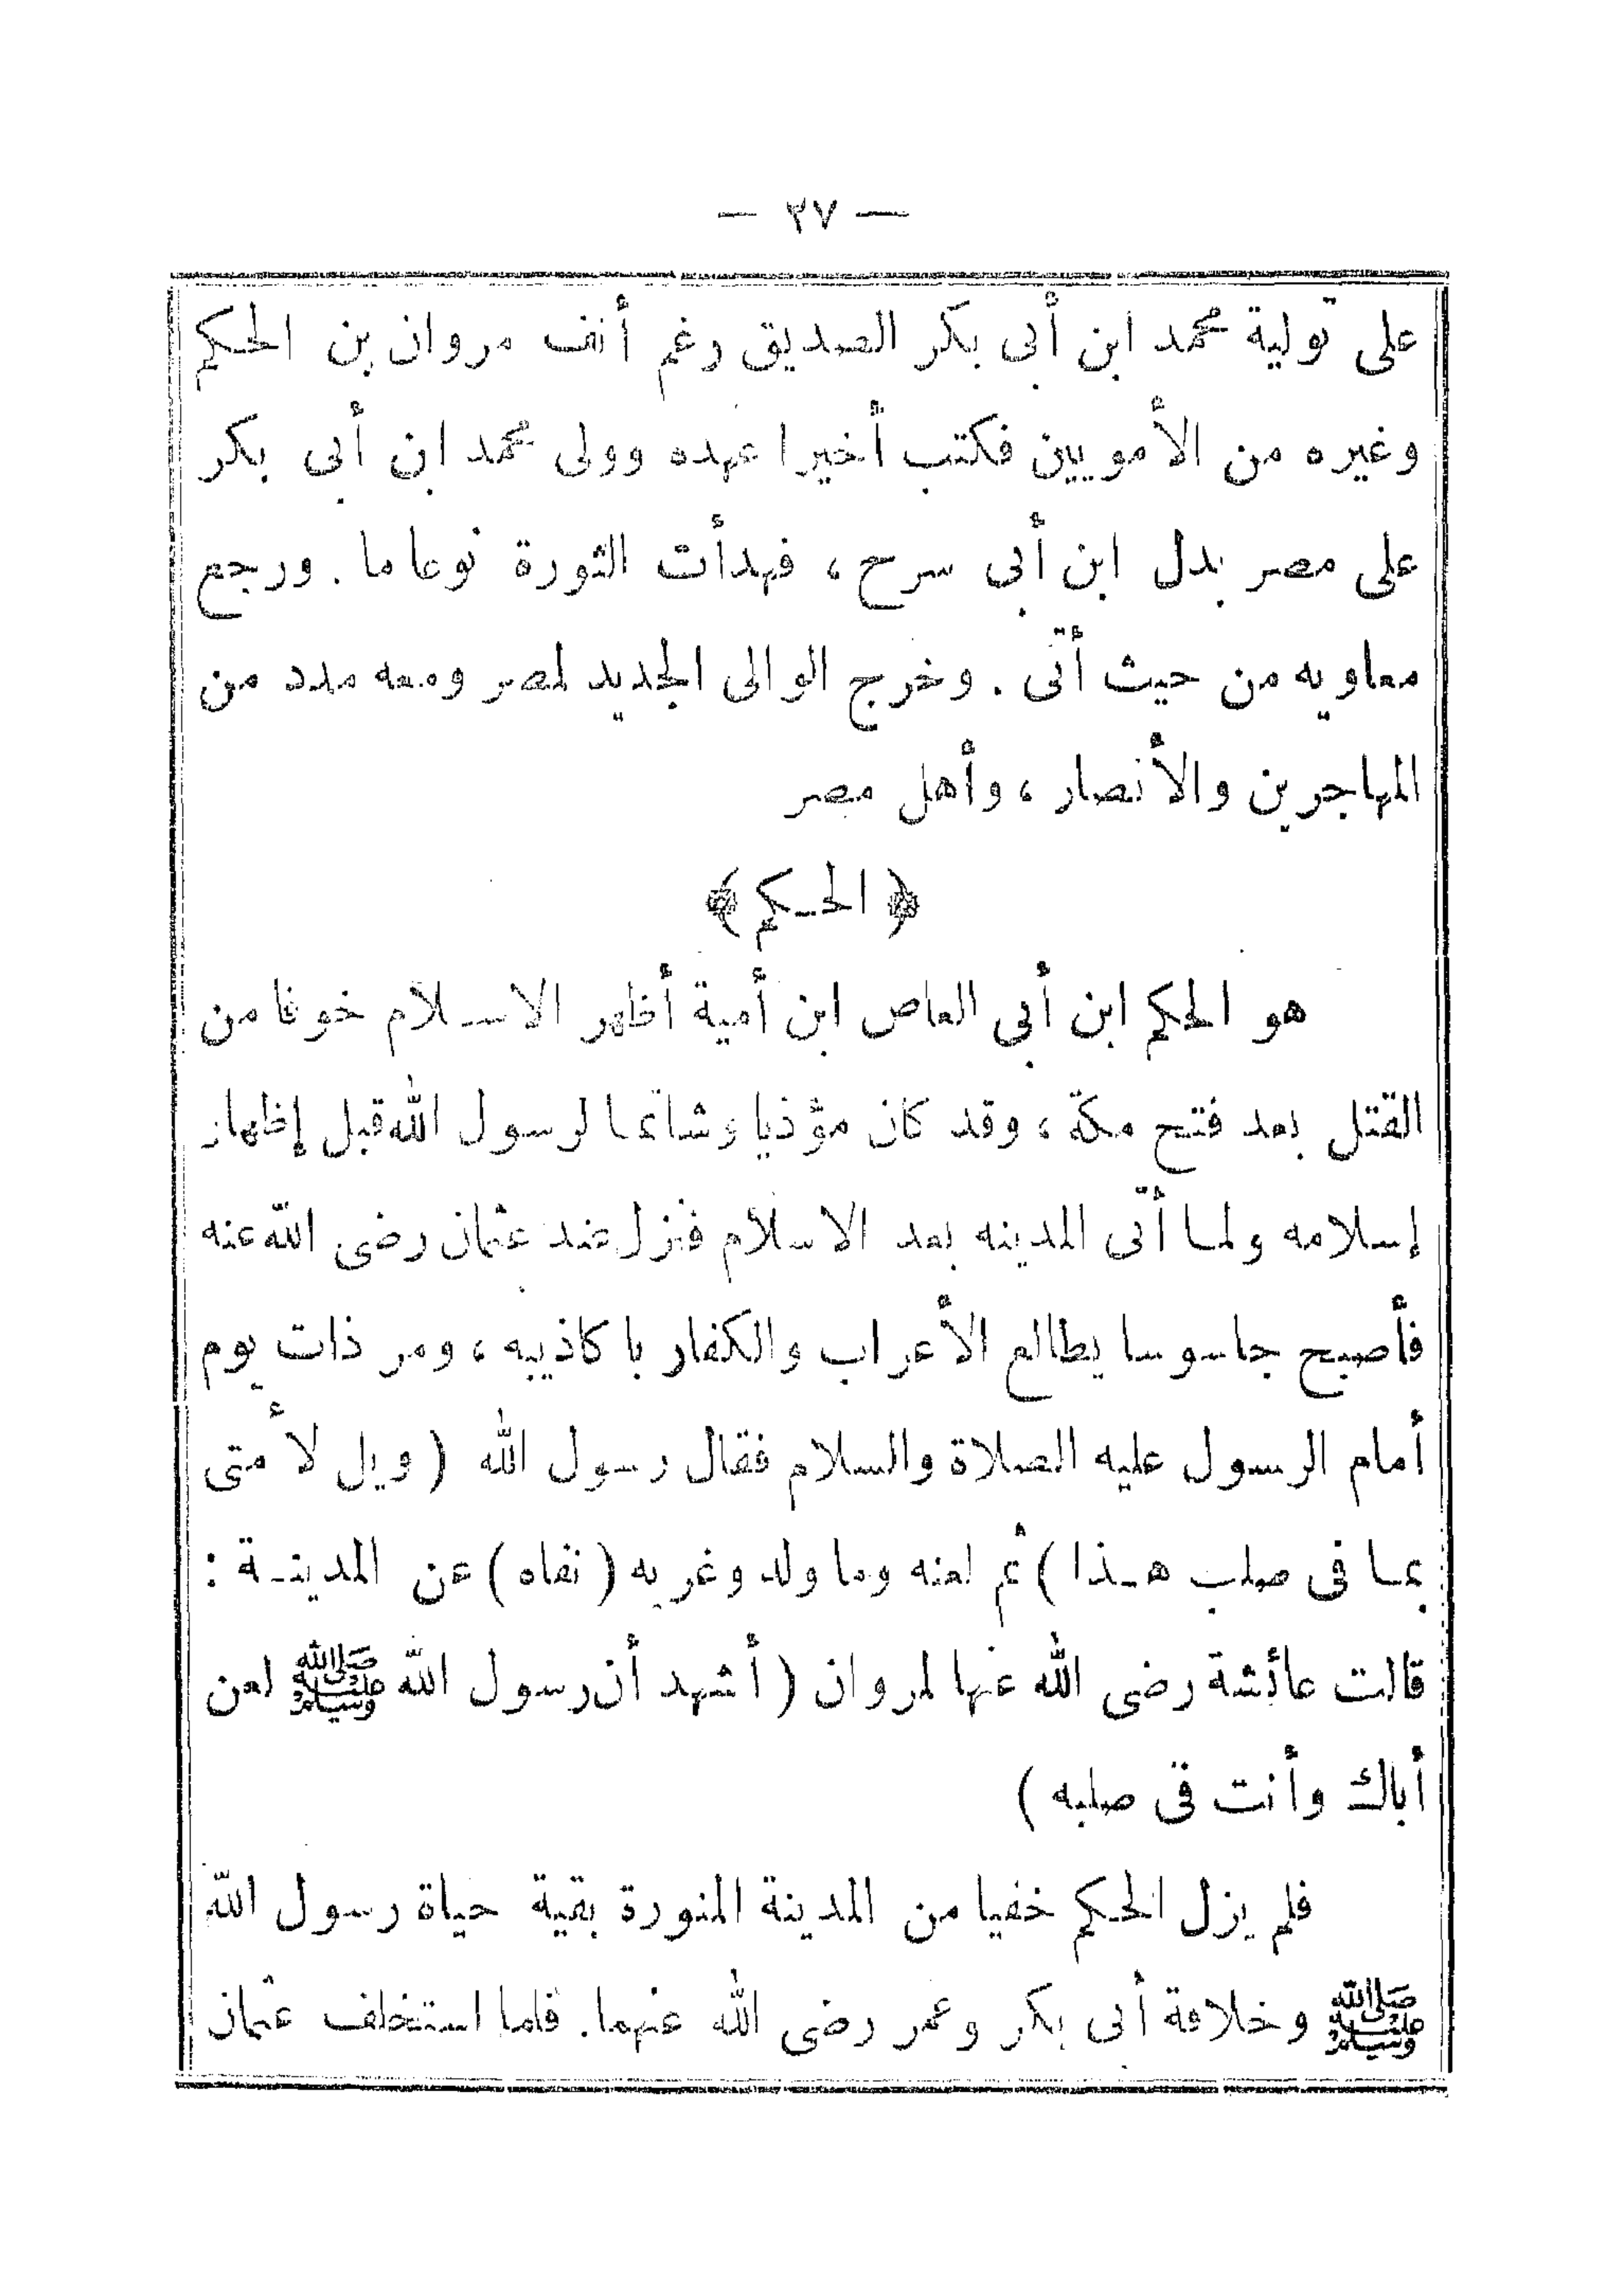 — ٢٧ —
على تولية محمد ابن أبى بكر الصديق رغم أنف مروان بن الحكم
وغيره من الأمويين فكتب أخيرا عهده وولى محمد ابن أبي بكر
على مصر بدل ابن أبى سرح ، فهدأت الثورة نوعا ما . ورجع
معاويه من حيث أتى . وخرج الوالى الجديد لمصر ومعه مدد من
المهاجرين والأنصار ، وأهل مصر
﴿ الحكم ﴾
هو الحكم ابن أبى العاص ابن أمية أظهر الاسلام خوفا من
القتل بعد فتح مكة ، وقد كان مؤذيا وشاتما لرسول الله قبل إظهار
إسلامه ولما أتى المدينه بعد الاسلام فنزل عند عثمان رضى الله عنه
فأصبح جاسوسا يطالع الأعراب والكفار باكاذيبه ، ومر ذات يوم
أمام الرسول عليه الصلاة والسلام فقال رسول الله ( ويل لأمتى
بما فى صلب هذا ) ثم لعنه وما ولد وغربه ( نفاه ) عن المدينة :
قالت عائشة رضى الله عنها لمروان ( أشهد أن رسول الله ﷺ لعن
أباك وأنت فى صلبه )
فلم يزل الحكم خفيا من المدينة المنورة بقية حياة رسول الله
ﷺ وخلافة أبى بكر وعمر رضى الله عنهما. فلما استخلف عثمان